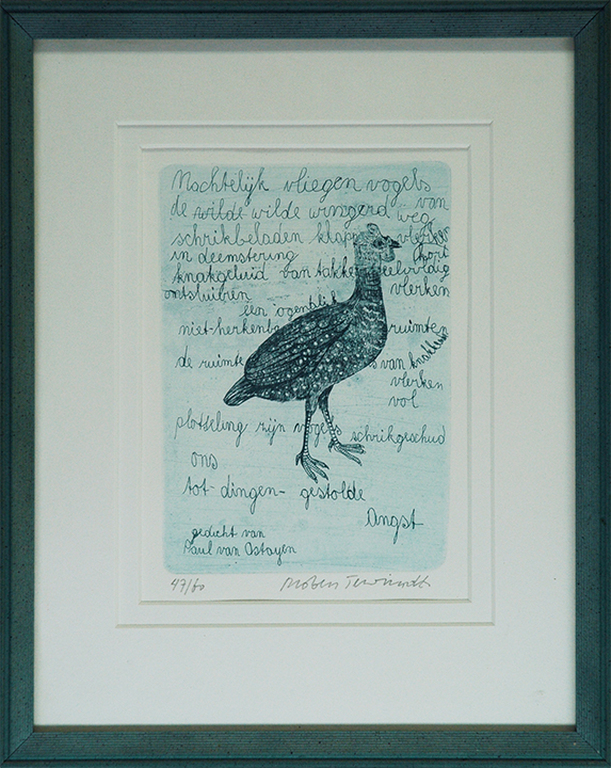 Nachtelijk vliegen vogels
de wilde wilde wingerd weg van
schrikbeladen klapp
in deemstering kort
knakgeluid van takke veelvoudig
ontsluiten vlerken
een ogenblik
niet-herkenba ruimten
de ruimte van knakken
vlerken
vol
plotseling zijn vogels schrikgeschud
ons
tot-dingen-gestolde
Angst
gedicht van
Paul van Ostayen
47/60